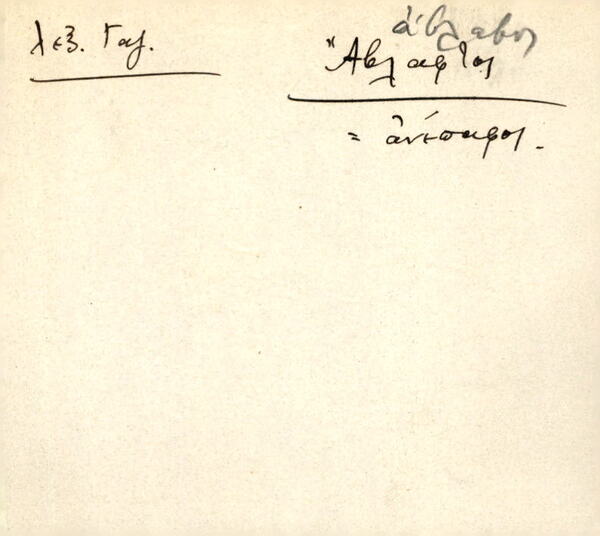 λεξ. Γαζ.
ἄβλαβος
Ἄβλαφτος
= ἀνέπαφος.